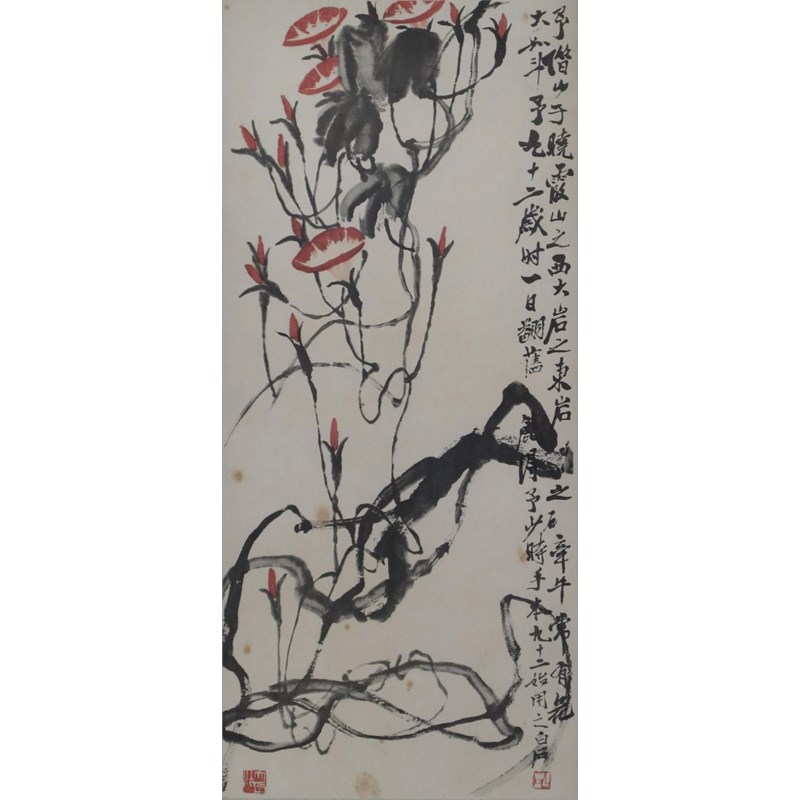 予借山于曉霞山之西大岩之東岩之石牽牛常有花
大如斗予九十二歲时一日翻舊尋得予少時手本九十二始用之白石